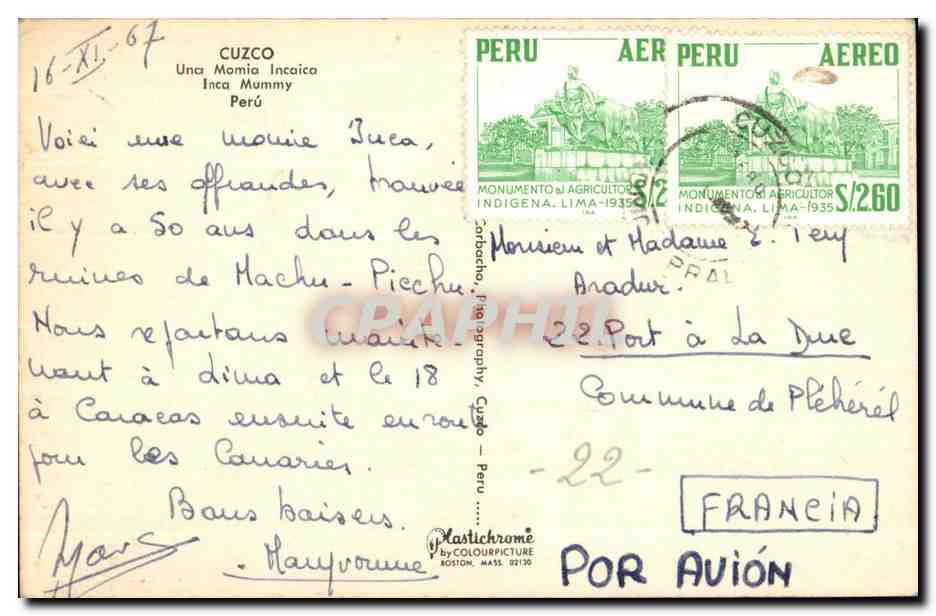 16-XI-67
CUZCO
Una Momia Incaica
Inca Mummy
Perú
Voici une momie Inca,
avec ses offrandes, trouvée
il y a 50 ans dans les
ruines de Machu-Picchu.
Nous repartons mainte-
nant à Lima et le 18
à Caracas ensuite en route
pour les Canaries.
Bons baisers.
Manyvonne
PERU AER
MONUMENTO al AGRICULTOR
INDIGENA. LIMA-1935
S/.2
PERU AEREO
MONUMENTO al AGRICULTOR
INDIGENA. LIMA-1935
S/.2.60
CUZCO
PRAL
Corbacho, Photography, Cuzco - Peru .....
Monsieur et Madame
Aradur.
22. Port à La Duc
Commune de Pléhérél
-22-
FRANCIA
POR AVIÓN
Plastichrome
by COLOURPICTURE
BOSTON, MASS. 02130
CPAPHIL